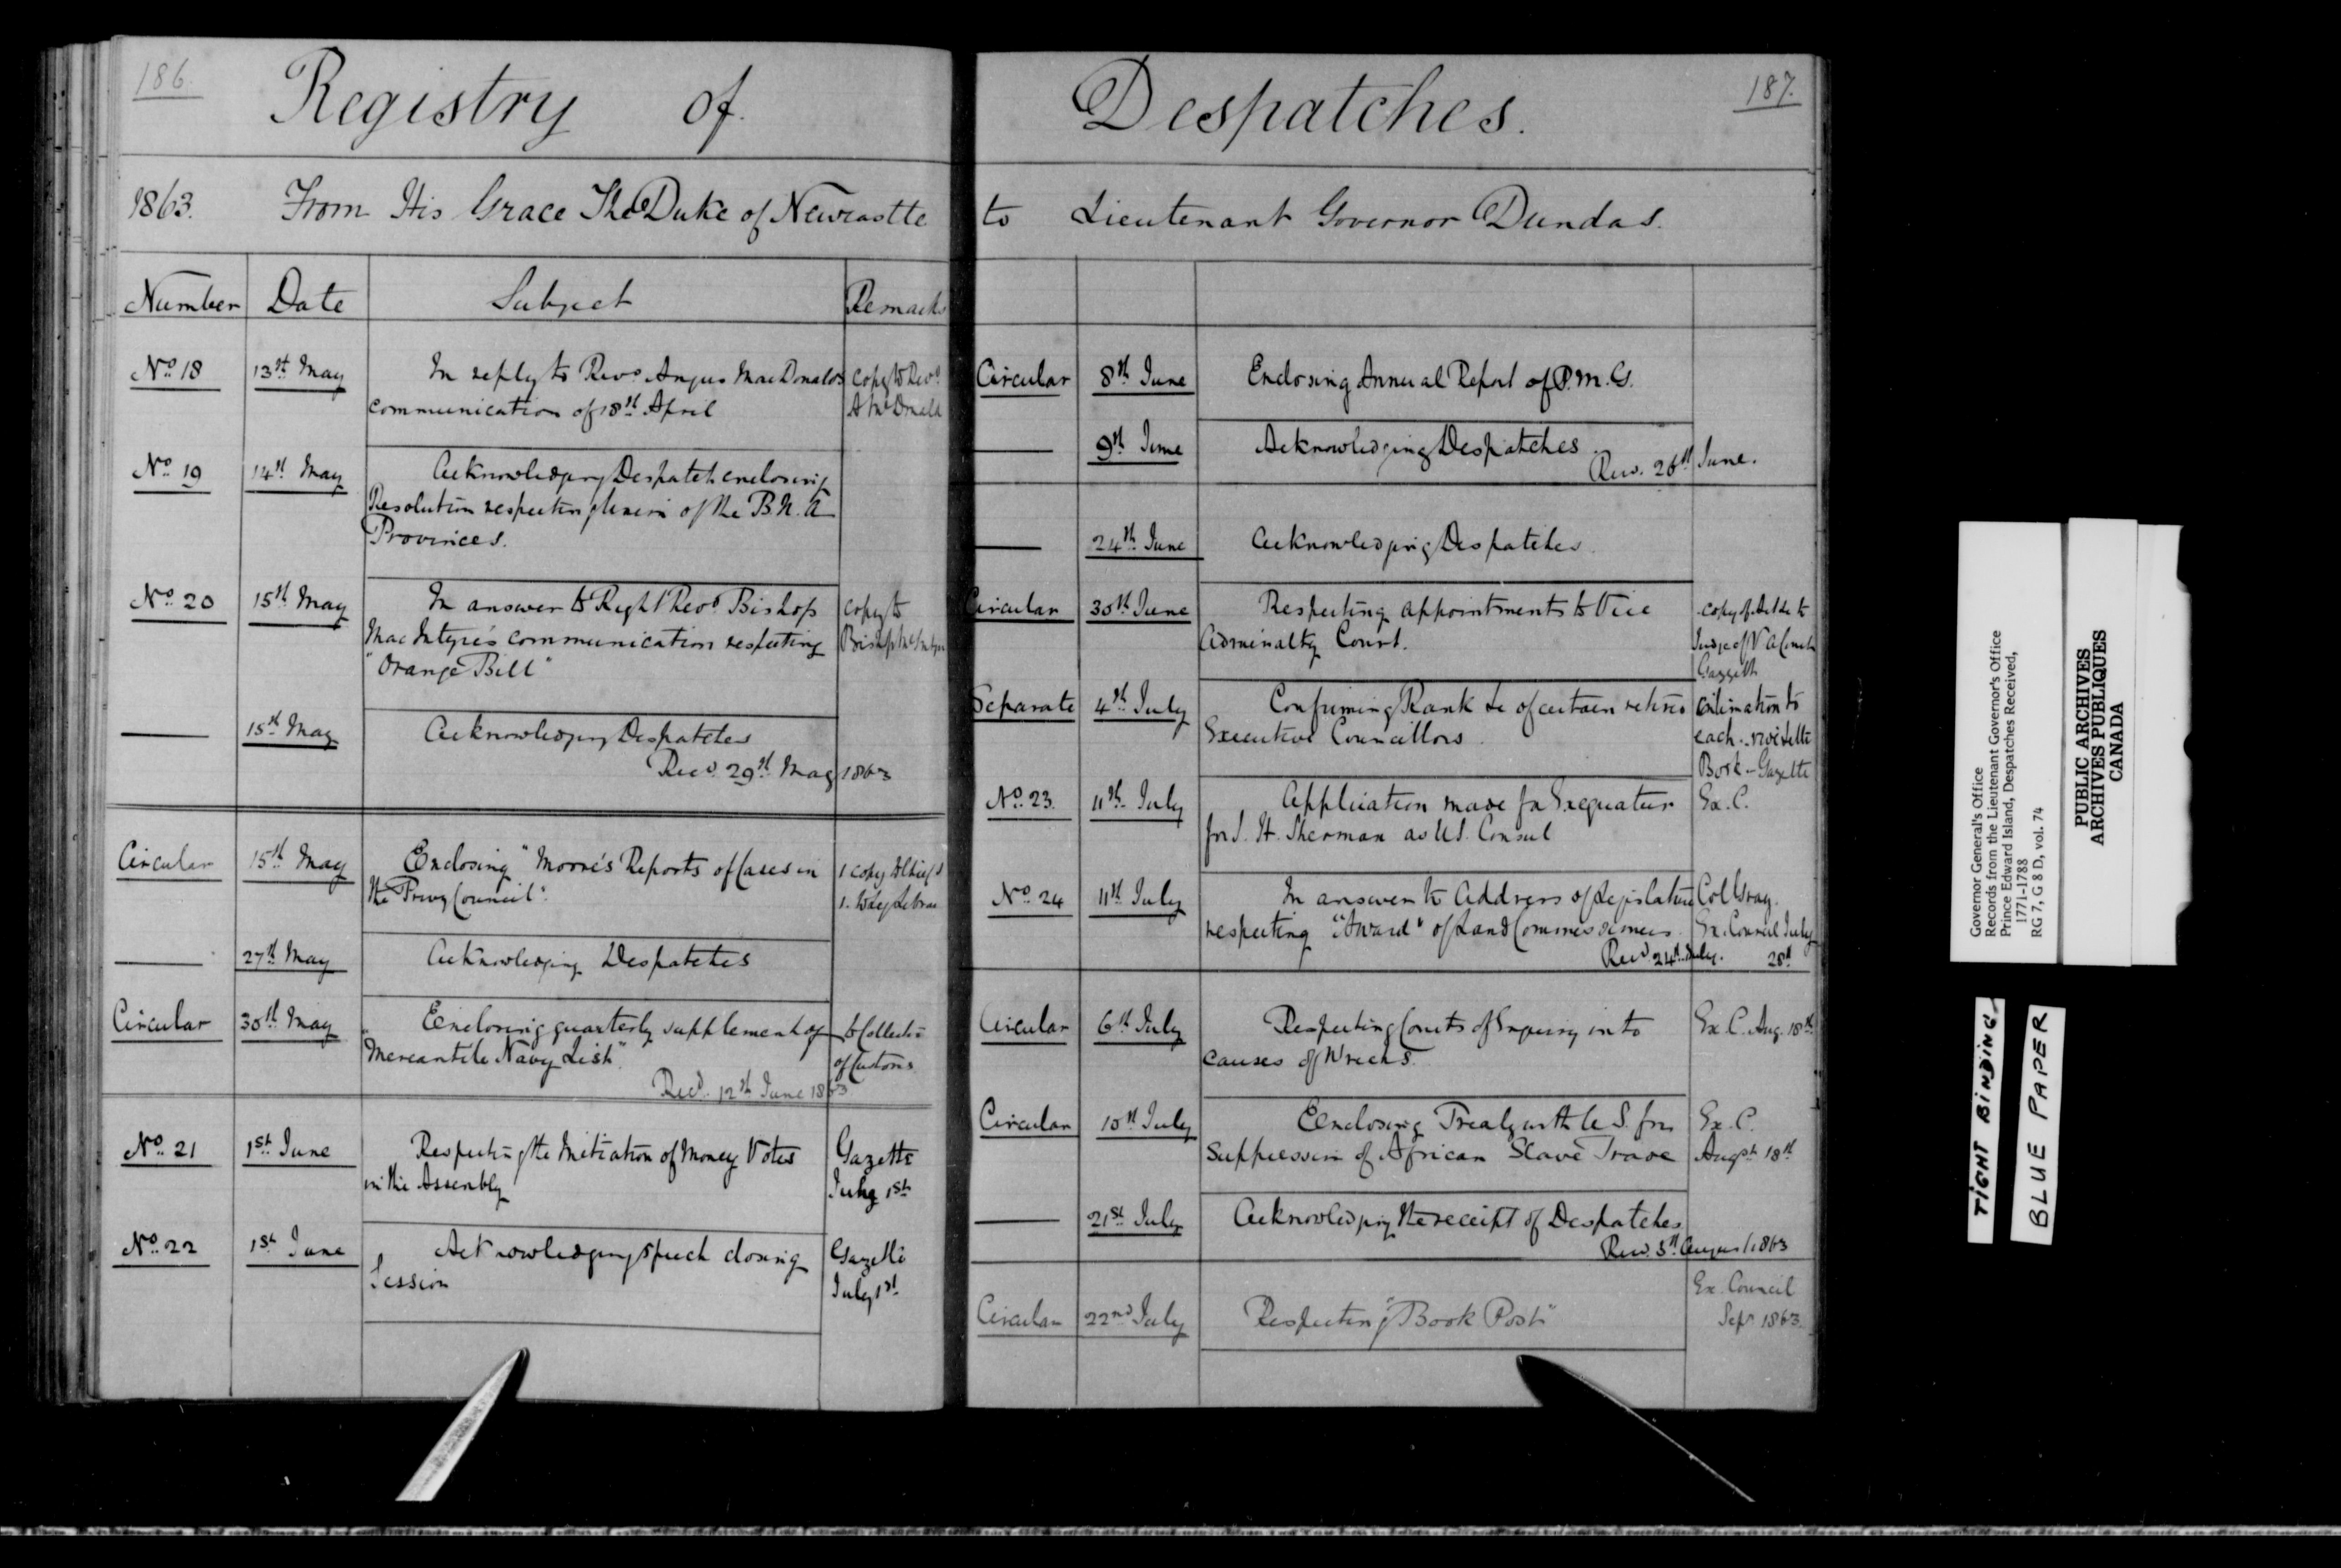 186.
Registry of
1863. From His Grace The Duke of Newcastle
Number Date Subject Remarks
No. 18 13th May In reply to Revd. Angus MacDonalds copy to Revd.
communication of 18th April A McDonald
No. 19 14th May Acknowledging Despatch enclosing
Resolution respecting Union of the B. N. A
Provinces.
No. 20 15th May In answer to Right Revd Bishop copy to
MacIntyre's communication respecting Bishop McIntyre
"Orange Bill"
15th May Acknowledging Despatches
Recd. 29th May 1863
Circular 15th May Enclosing "Moore's Reports of Cases in 1 copy to
the Privy Council". 1.
27th May Acknowledging Despatches
Circular 30th May Enclosing quarterly supplement of to Collector
"Mercantile Navy List". of Customs
Recd. 12th June 1863
No. 21 1st June Respecting the Initiation of Money Votes Gazette
in the Assembly July 1st
No. 22 1st June Acknowledging speech closing Gazette
Session July 1st
187.
Despatches.
to Lieutenant Governor Dundas.
Circular 8th June Enclosing Annual Report of P. M. G.
9th June Acknowledging Despatches
Recd. 26th June.
24th June Acknowledging Despatches.
Circular 30th June Respecting appointments to Vice copy of to
Adminalty Court. Judge of V A Court
Gazette
Separate 4th July Confirming Rank &c of certain retired intimation to
Executive Councillors. each - vide Letter
Book - Gazette
No. 23. 11th July Application made for Exequatur Ex. C.
for J. H. Sherman as U.S. Consul
No. 24 11th July In answer to Address of Legislature Col Gray.
respecting "Award" of Land Commissioners. Ex. Council July
Recd 24th July. 28th
Circular 6th July Respecting Courts of Inquiry into Ex. C. Aug. 18th
causes of Wrecks.
Circular 10th July Enclosing Treaty with U. S. for Ex. C.
suppression of African Slave Trade Augst 18th
21st July Acknowledging the receipt of Despatches
Recd. 5th August 1863
Ex. Council
Circular 22nd July Respecting "Book Post" Sepr 1863.
Governor General's Office
Records from the Lieutenant Governor's Office
Prince Edward Island, Despatches Received,
1771-1788
RG 7, G 8 D, vol. 74
PUBLIC ARCHIVES
ARCHIVES PUBLIQUES
CANADA
TIGHT BINDING
BLUE PAPER